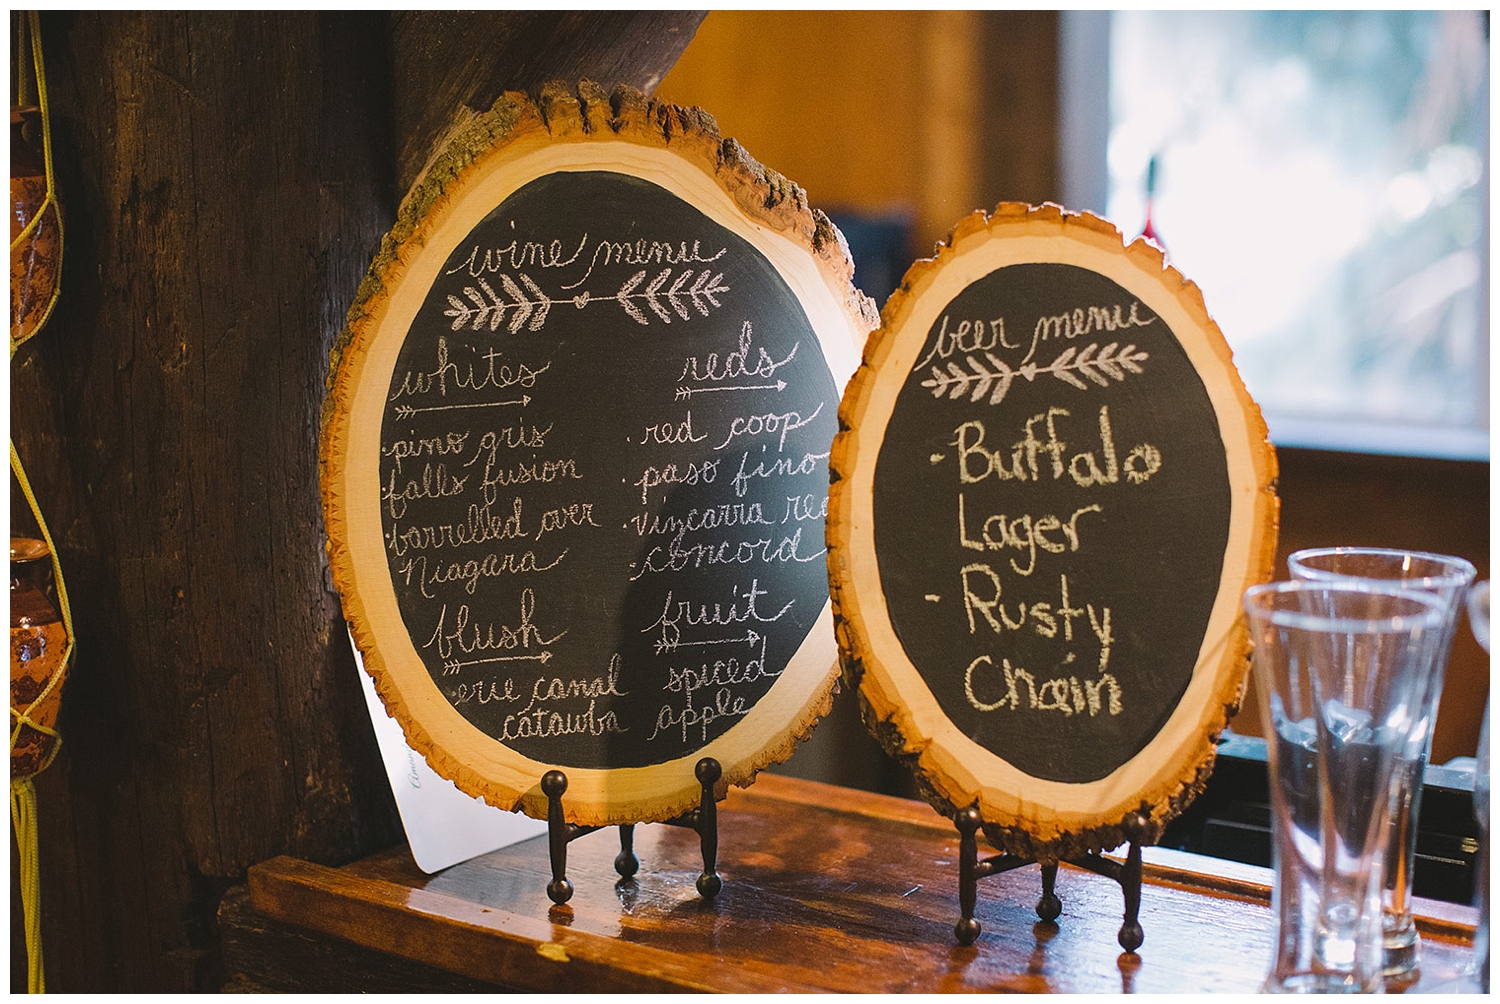 wine menu
whites
·pino gris
·falls fusion
·barrelled over
Niagara
blush
·erie canal
catawba
reds
·red coop
·paso fino
·vizcarra red
·concord
fruit
·spiced
apple
beer menu
- Buffalo
Lager
- Rusty
Chain